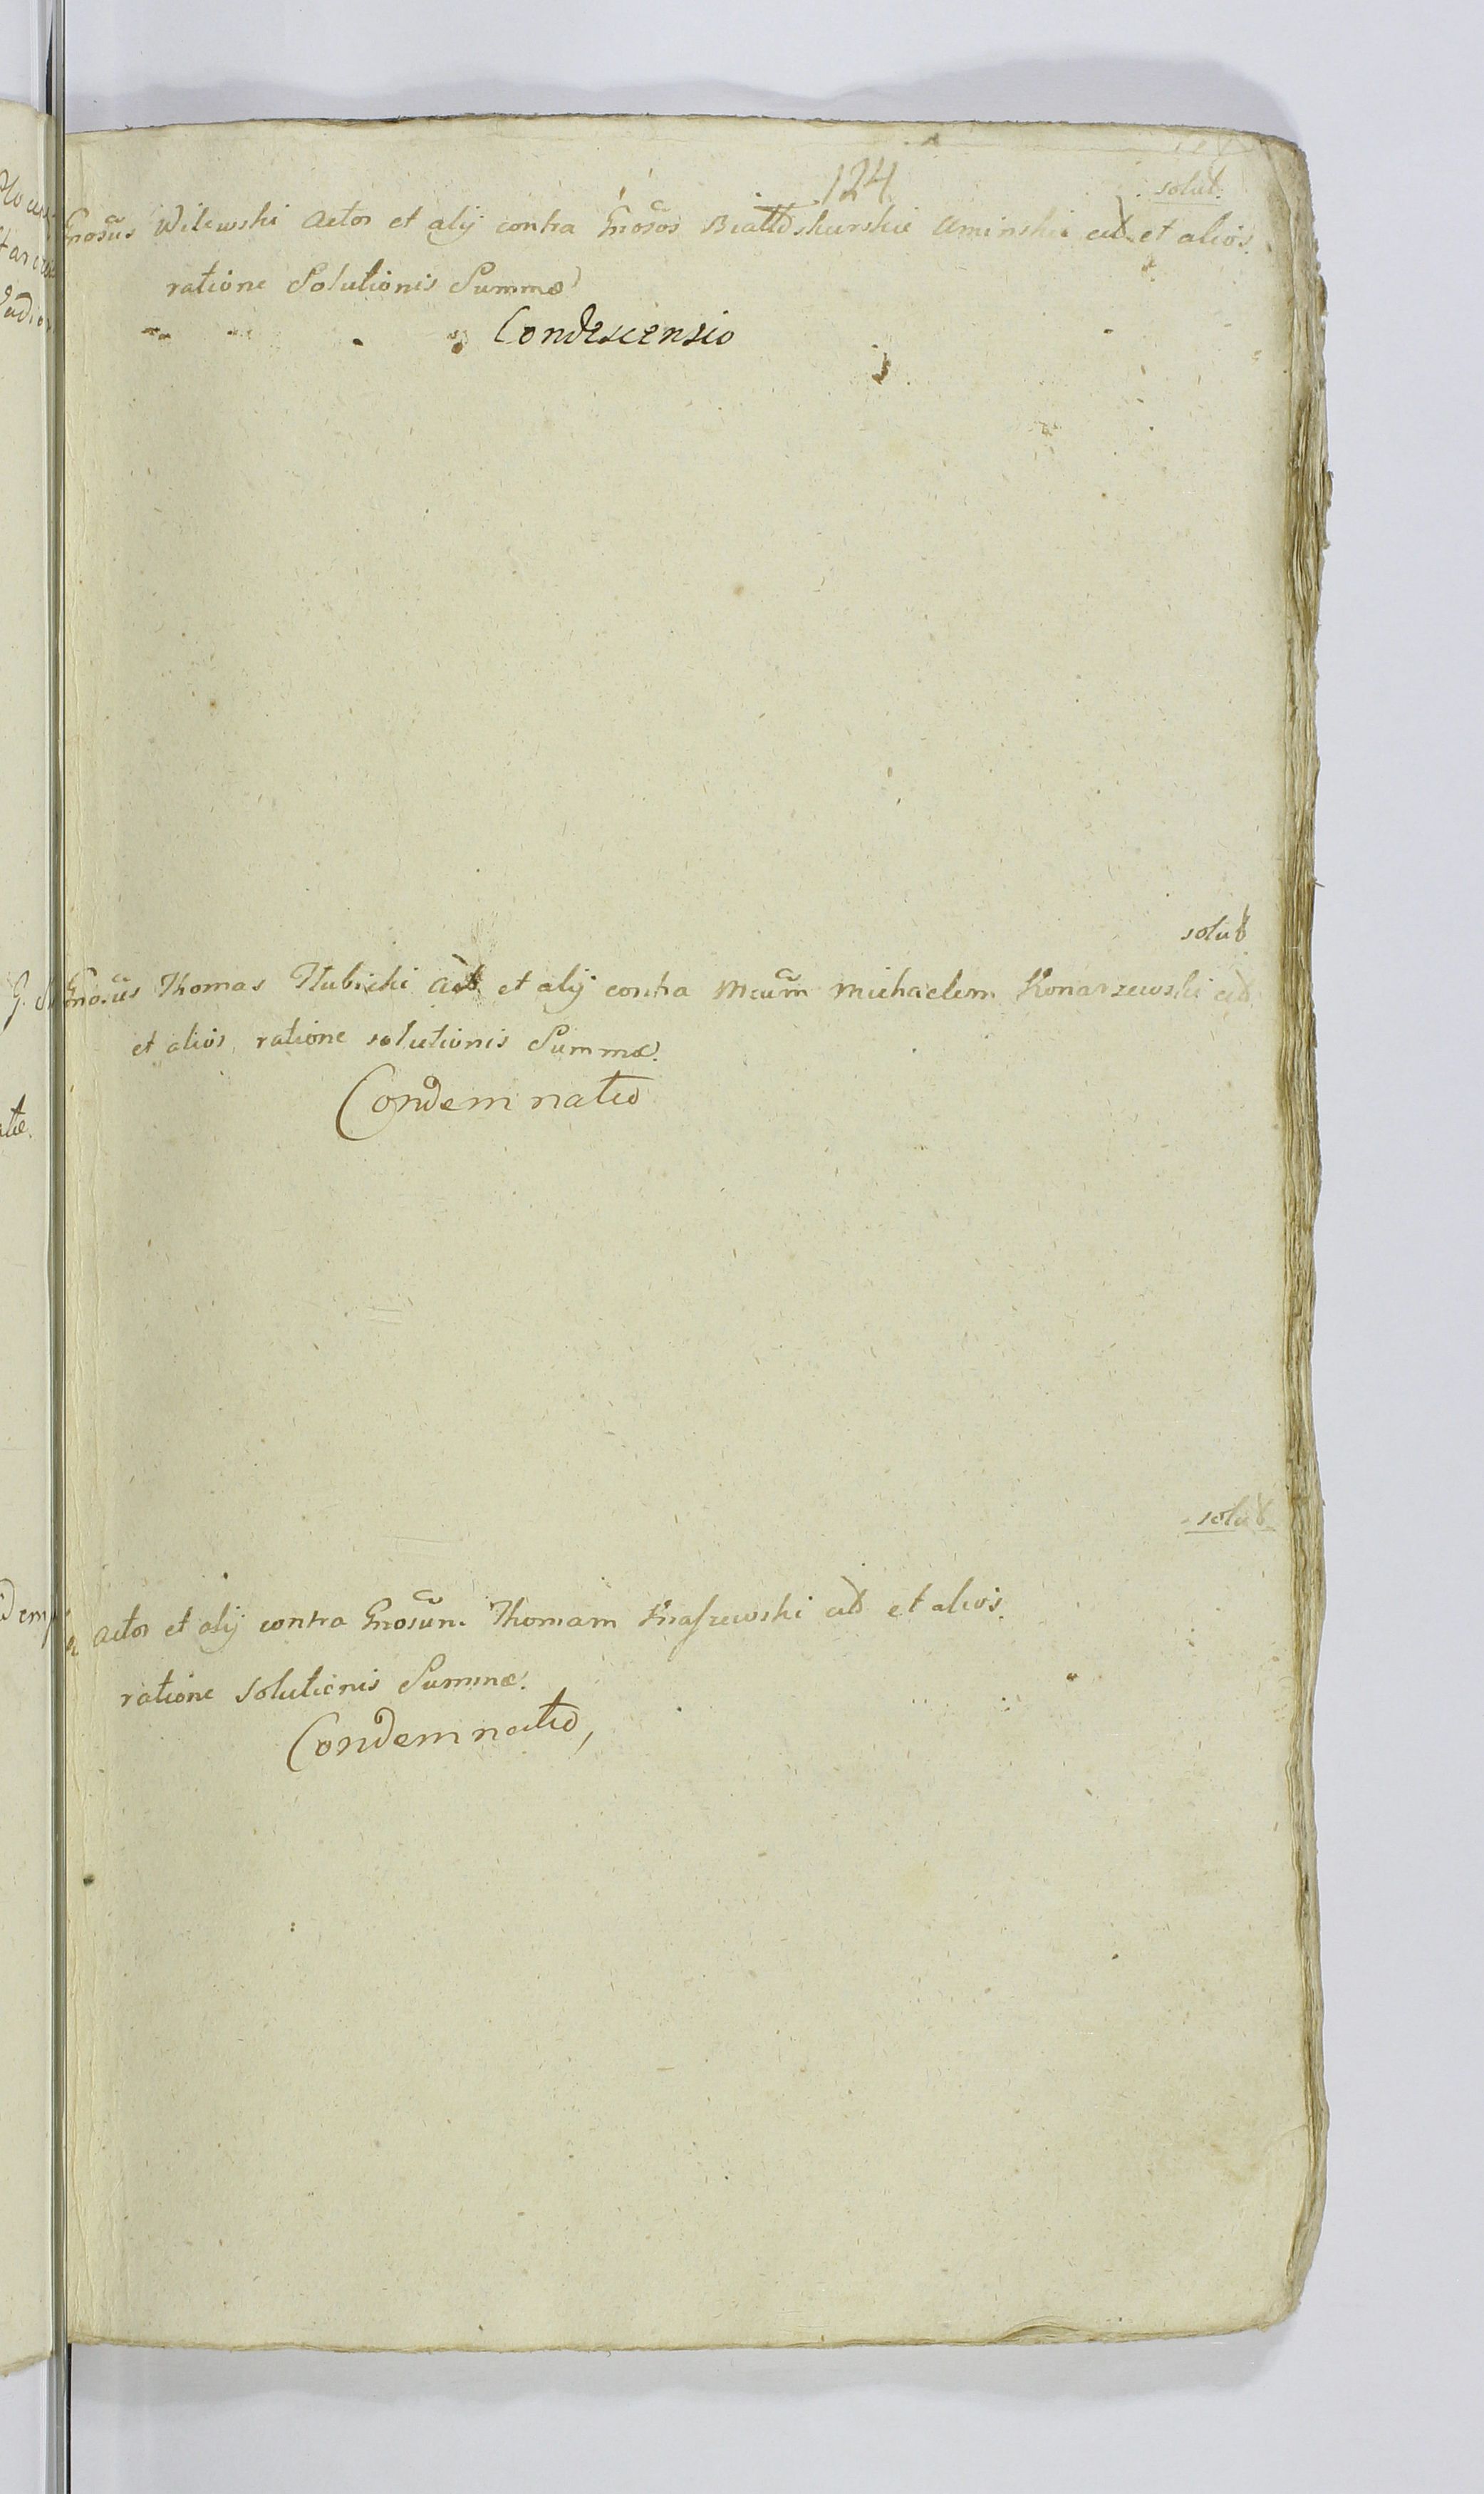 124
solut.
Gnosus Wilewski Actor et alij contra Gnosos Białłoskurskie Aminskie cit. et alios.
ratione Solutionis Summæ
Condescensio
solut
Gnosus Thomas Hubicki Act. et alij contra Mcum Michaelem Konarzewski cit.
et alios, ratione solutionis Summæ.
Condemnatio
solut
Actor et alij contra Gnosum Thomam cit et alios.
ratione solutionis Summæ.
Condemnatio,